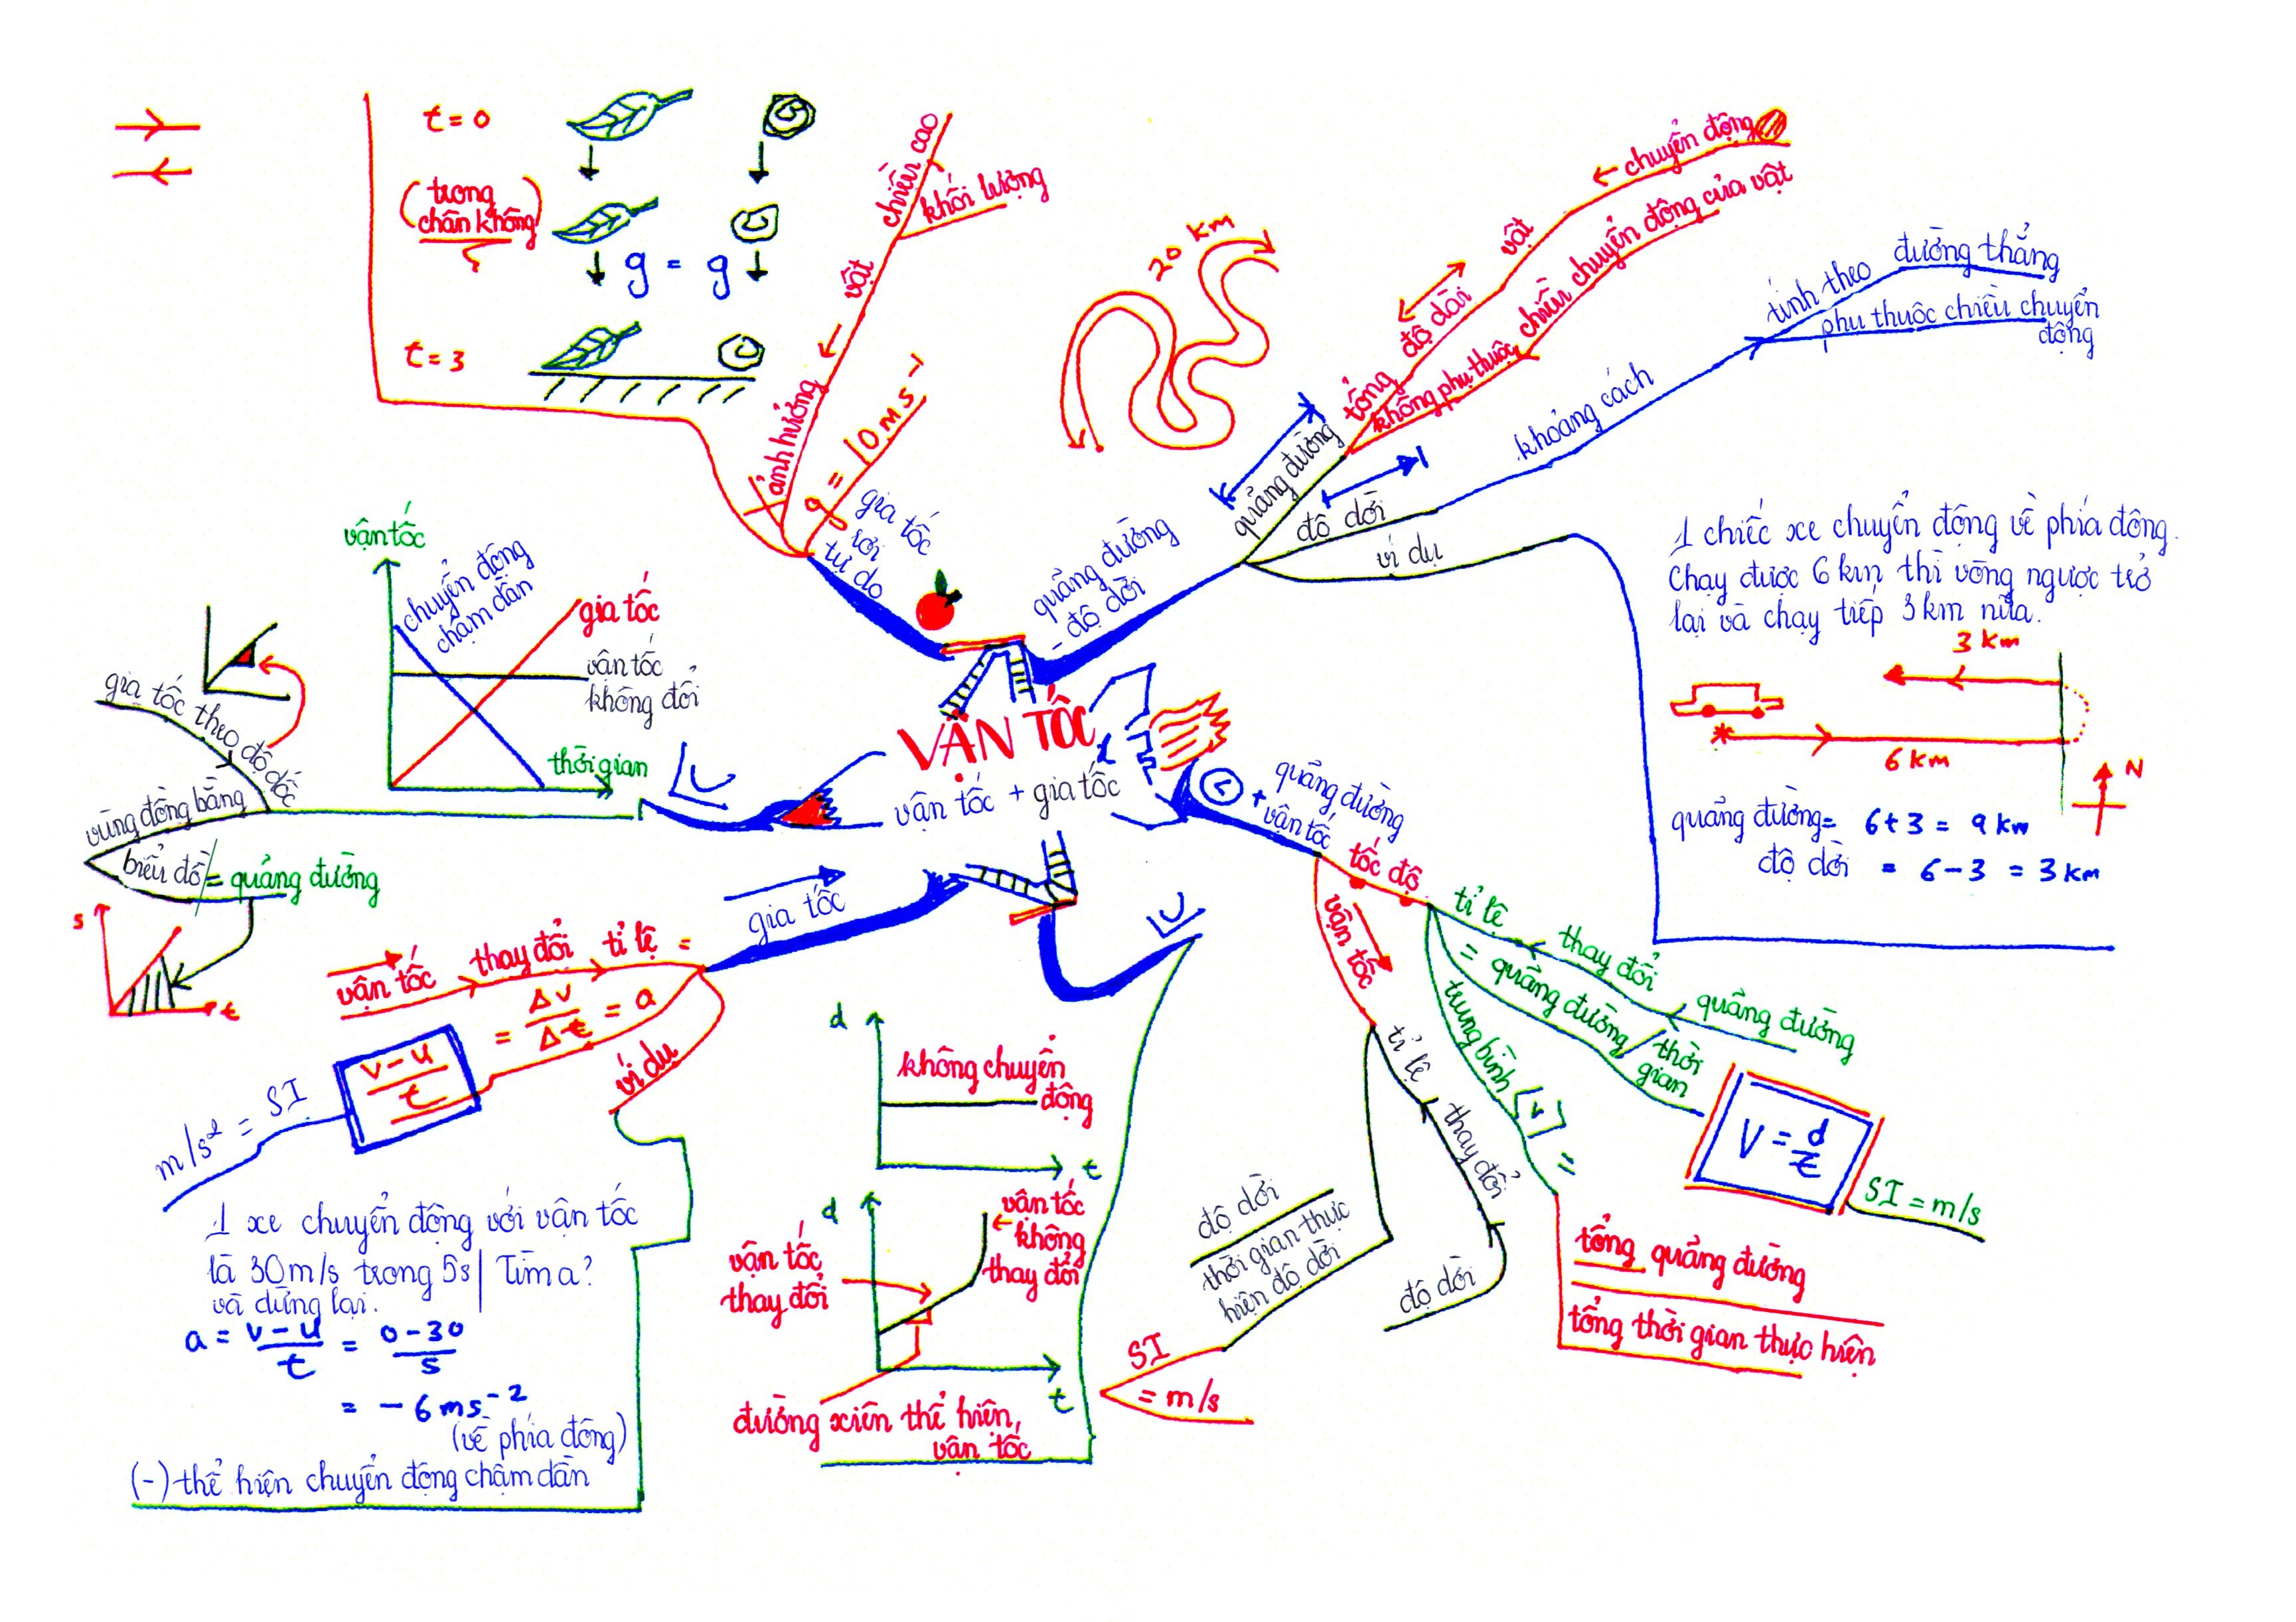 t = 0
(trong
chân không)
g = g
t = 3
ảnh hưởng
vật
chiều cao
khối lượng
g = 10 ms⁻¹
gia tốc
rơi
tự do
20 km
quảng đường
- độ dời
quảng đường
tổng
độ dài
vật
chuyển động
không phụ thuộc chiều chuyển động của vật
độ dời
khoảng cách
tính theo đường thẳng
phụ thuộc chiều chuyển
động
ví dụ
1 chiếc xe chuyển động về phía đông.
Chạy được 6 km thì vòng ngược trở
lại và chạy tiếp 3 km nữa.
3 km
6 km
N
quảng đường = 6 + 3 = 9 km
độ dời = 6 - 3 = 3 km
VẬN TỐC
vận tốc + gia tốc
vận tốc
chuyển động
chậm dần
gia tốc
vận tốc
không đổi
thời gian
gia tốc theo độ dốc
vùng đồng bằng
biểu đồ = quảng đường
s
t
gia tốc
vận tốc thay đổi tỉ lệ =
= Δv/Δt = a
v - u
t
m/s² = SI
ví dụ
1 xe chuyển động với vận tốc
là 30 m/s trong 5s | Tìm a?
và dừng lại.
a = v - u / t = 0 - 30 / 5
= - 6 ms⁻²
(về phía đông)
(-) thể hiện chuyển động chậm dần
d
không chuyển
động
t
d
vận tốc
không
thay đổi
vận tốc
thay đổi
t
đường xiên thể hiện
vận tốc
quảng đường
+ vận tốc
tốc độ
tỉ lệ
thay đổi
quảng đường
= quảng đường / thời
gian
V = d/t
SI = m/s
trung bình [v] =
tổng quảng đường
tổng thời gian thực hiện
vận tốc
tỉ lệ
thay đổi
độ dời
độ dời
thời gian thực
hiện độ dời
SI
= m/s